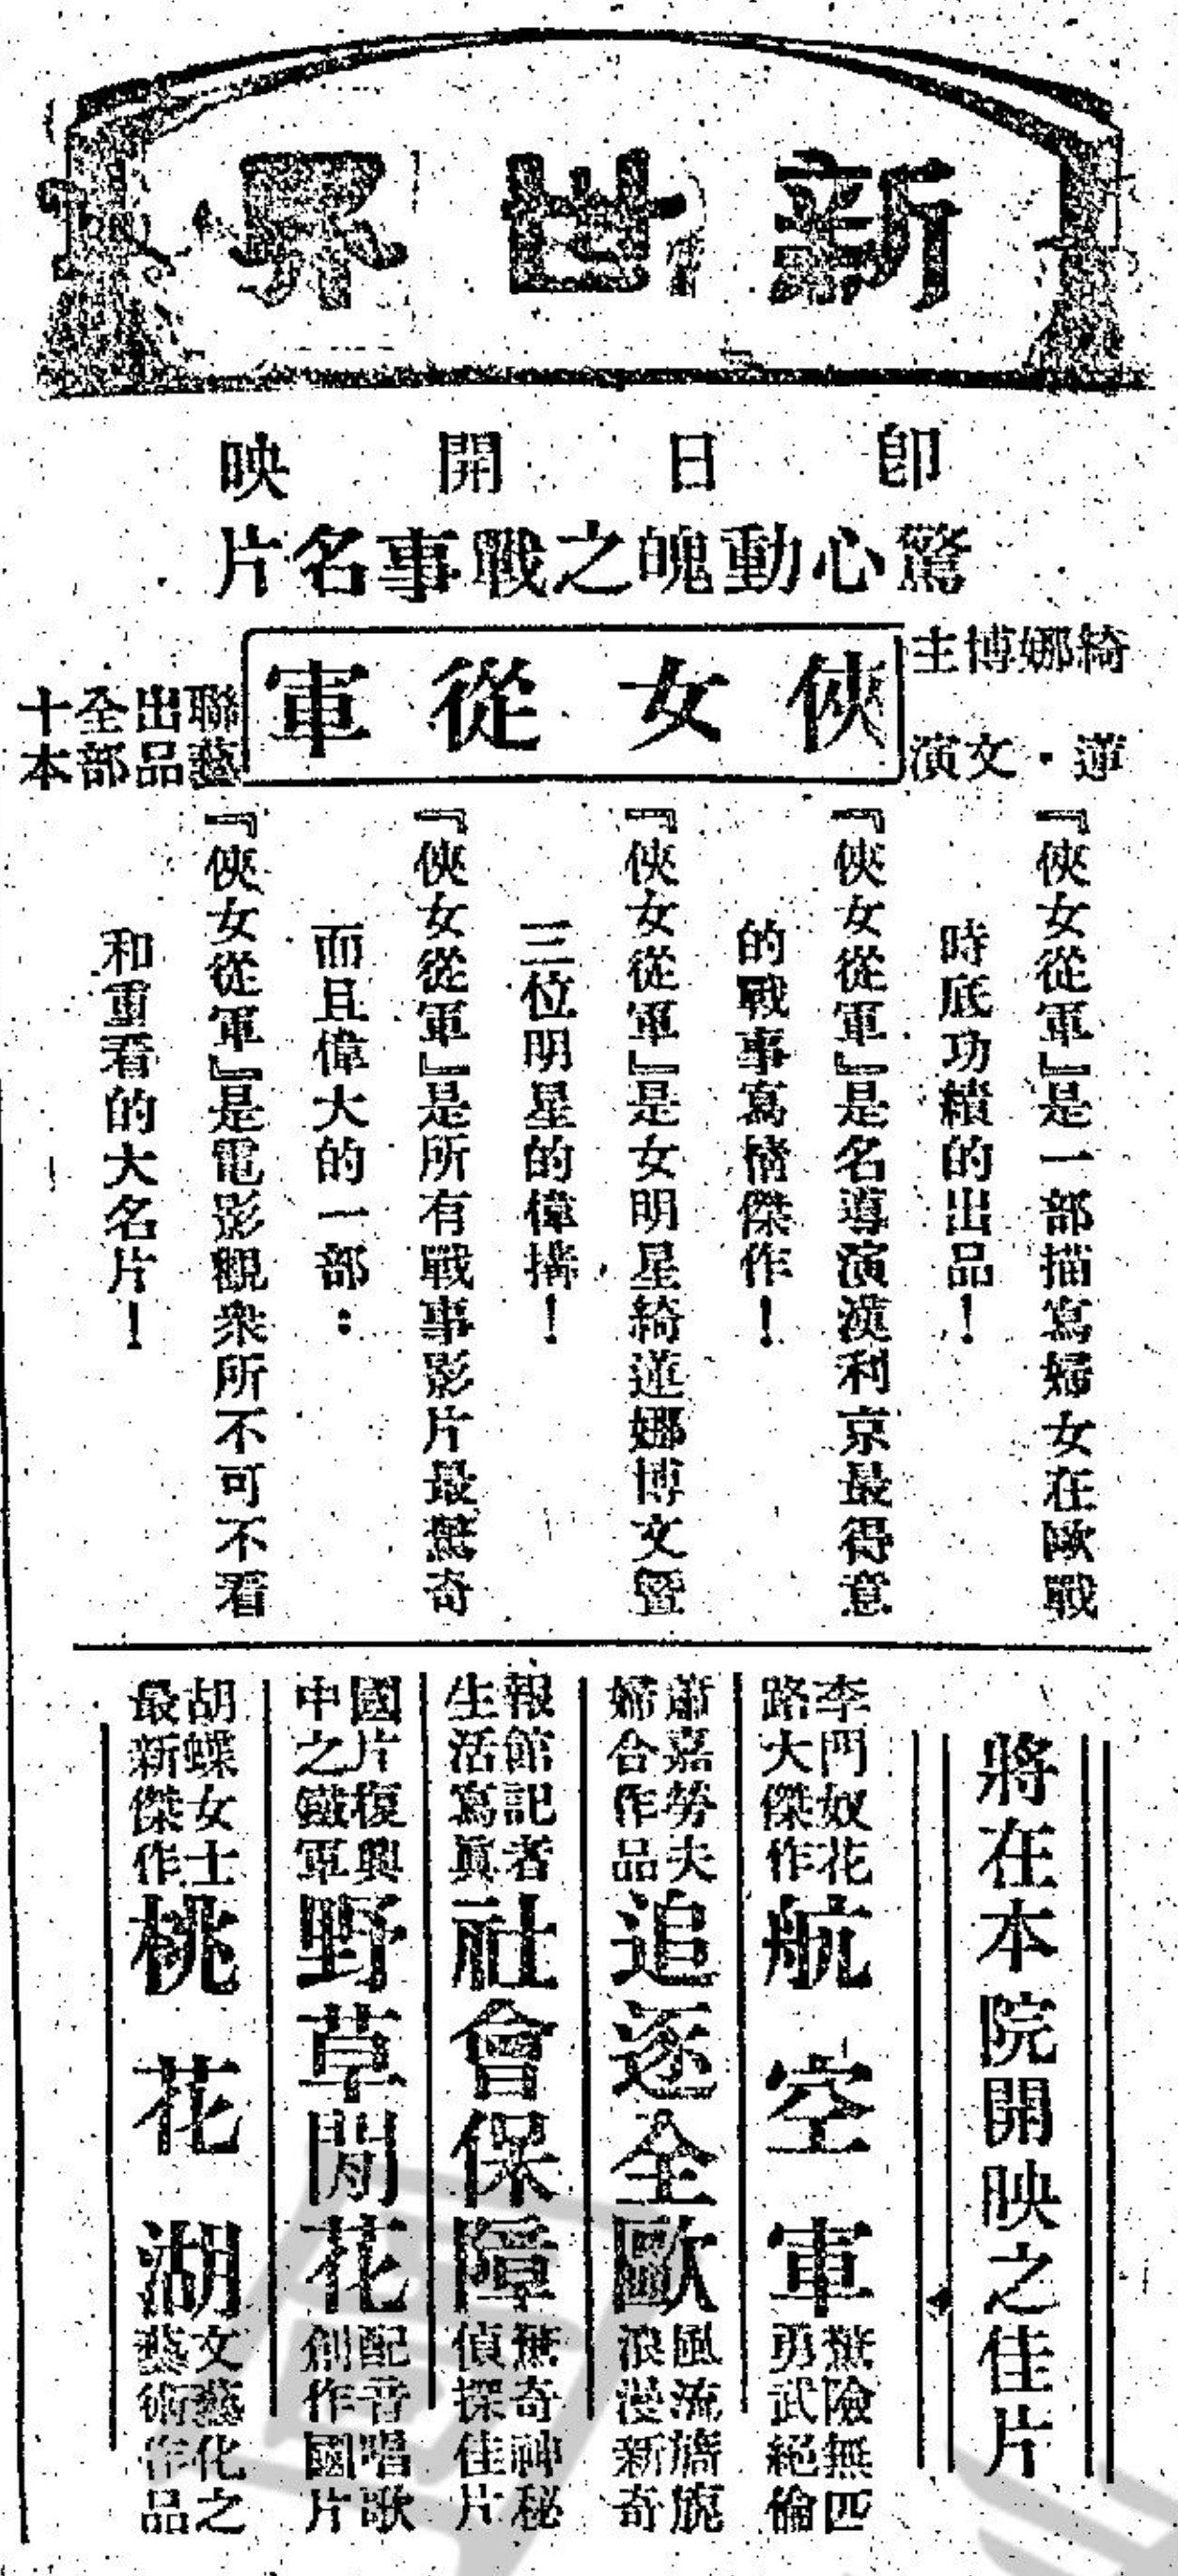 新世界
卽日開映
驚心動魄之戰事名片
綺蓮娜・博文主演
俠女從軍
聯藝出品全部十本
『俠女從軍』是一部描寫婦女在歐戰
時底功績的出品！
『俠女從軍』是名導演漢利京最得意
的戰事寫情傑作！
『俠女從軍』是女明星綺蓮娜博文暨
三位明星的偉構！
『俠女從軍』是所有戰事影片最驚奇
而且偉大的一部：
『俠女從軍』是電影觀衆所不可不看
和重看的大名片！
將在本院開映之佳片
李門奴花
路大傑作
航空軍
驚險無匹
勇武絕倫
蕭嘉勞夫
婦合作品
追逐全歐
風流旖旎
浪漫新奇
報館記者
生活寫眞
社會保障
驚奇神秘
偵探佳片
國片復興
中之鐵軍
野草閒花
配音唱歌
創作國片
胡蝶女士
最新傑作
桃花湖
文藝化之
藝術作品